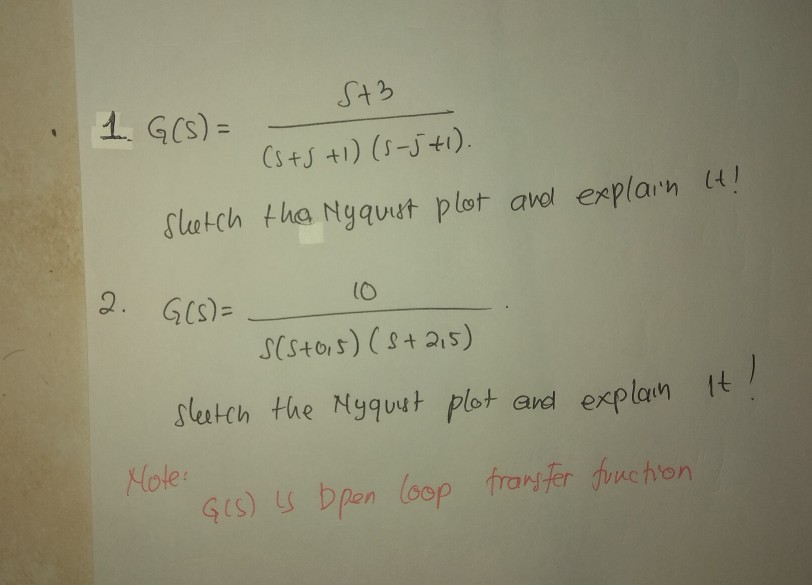 1. G(S) = S+3
(S+j+1) (S-j+1).
Sketch the Nyquist plot and explain it!
2. G(S) = 10
S(S+0,5) (S+2,5)
Sketch the Nyquist plot and explain it!
Note:
G(S) is open loop transfer function